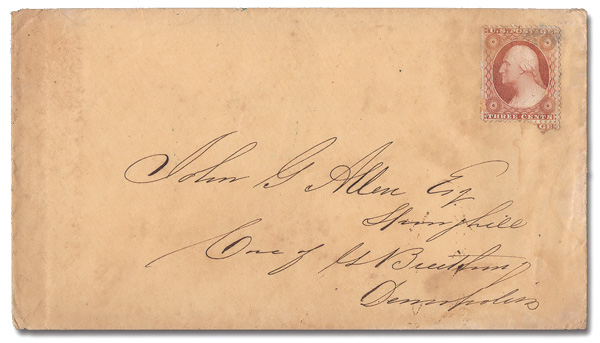 U.S. POSTAGE
THREE CENTS
John G Allen Esq
Springhill
Care of
Demopolis